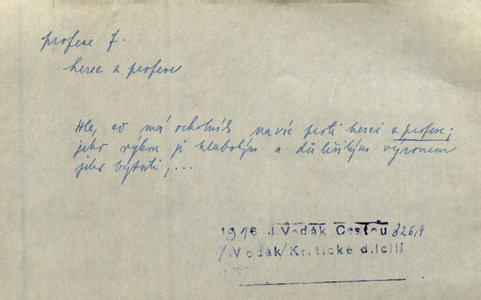 profese f.
herec z profese
Hle, co má ochotník navíc proti herci z profese;
jeho výkon je hlubokým a důležitým výronem
jeho bytosti, ...
1946 J Vodák Cestou 326,4
/Vodák/Kritické